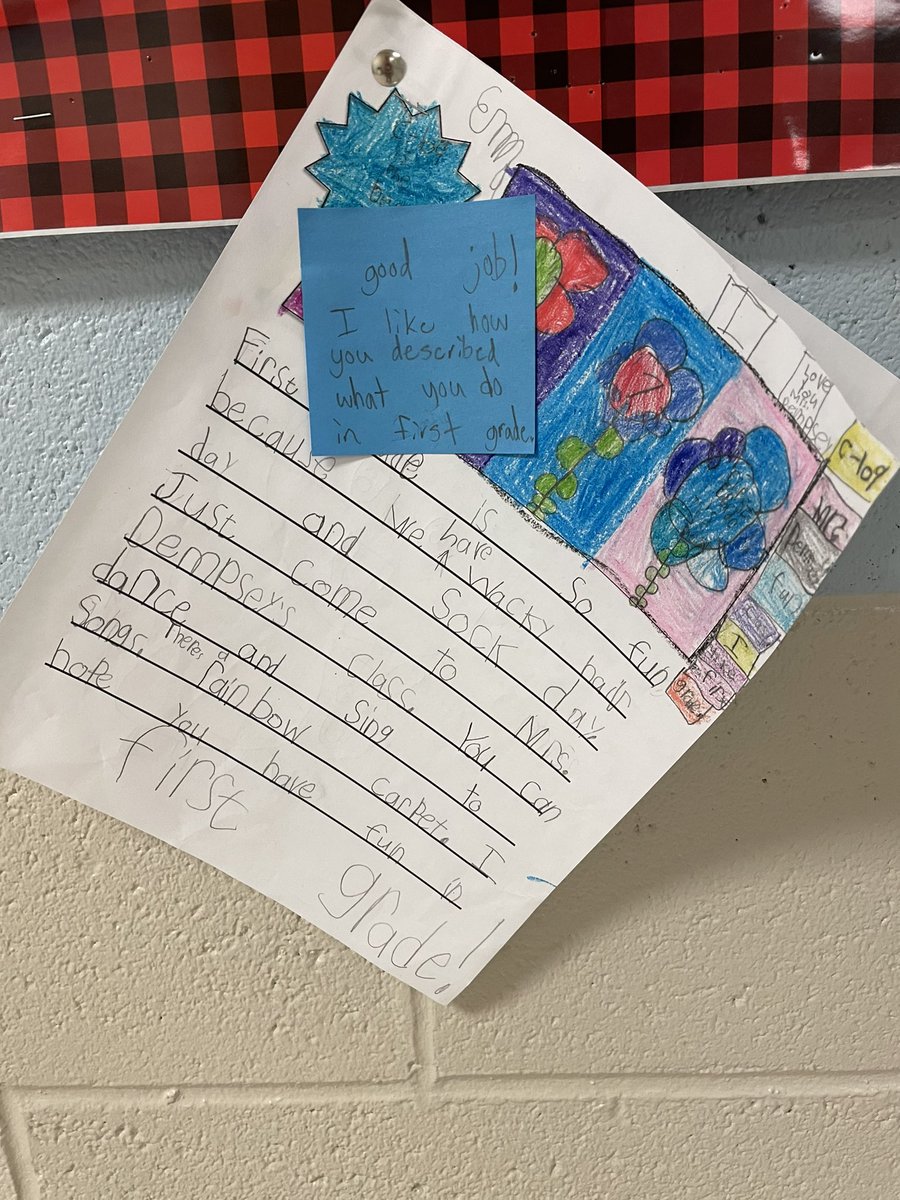 Emma
good job!
I like how
you described
what you do
in first grade.
First is so fun
because we have wacky hair
day and Sock day.
Just come to Mrs.
Dempsey's class. You can
dance and sing to
songs. Theres a rainbow carpet. I
hope you have fun in
first
grade!
Love
you
Mrs.
Dempsey
C-109
fun
I
first
grade